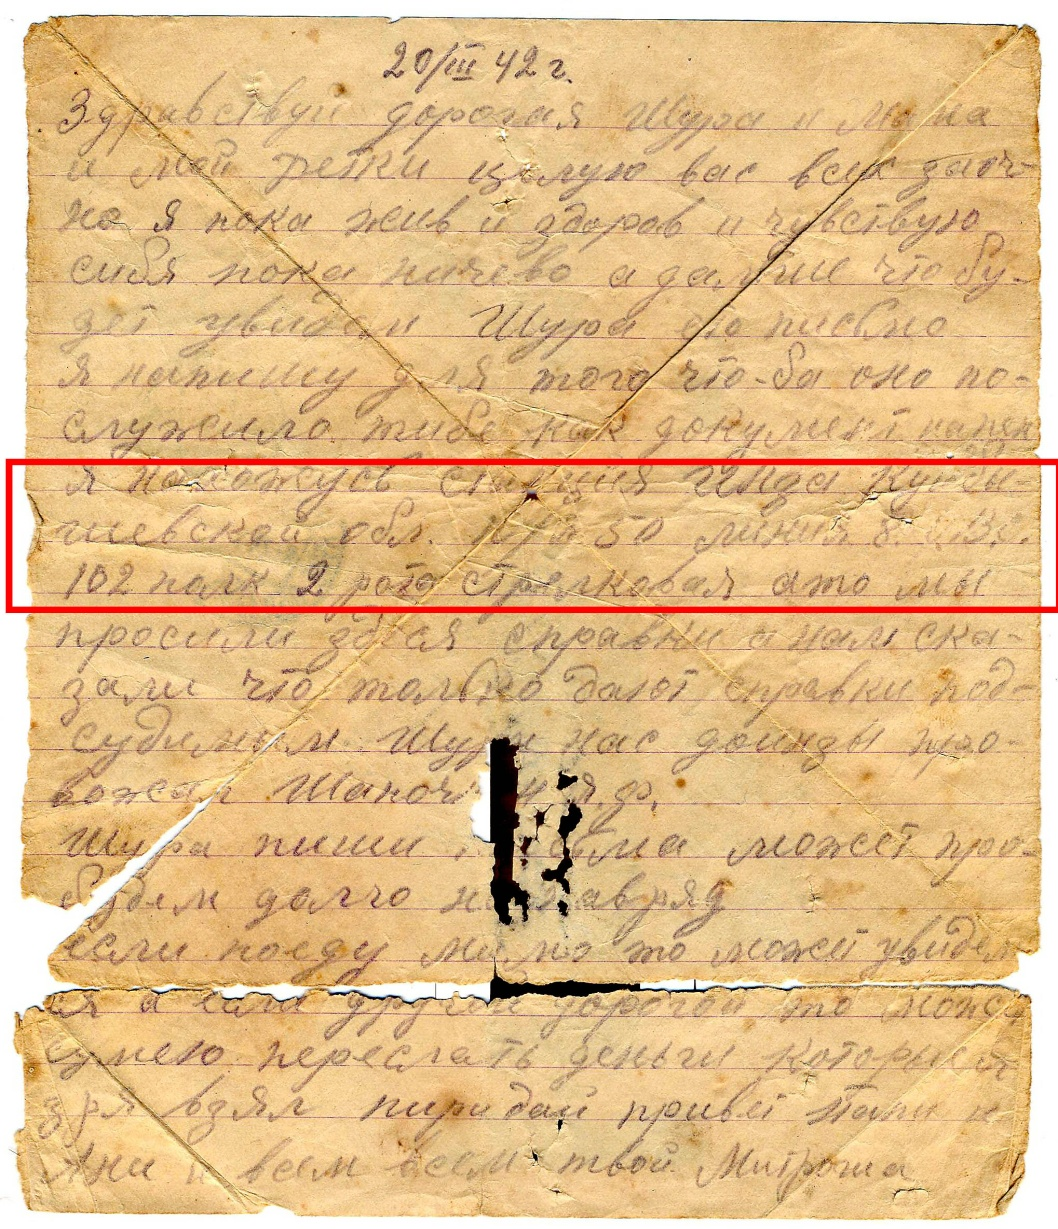 20/III 42 г.
Здравствуй дорогая Шура и Мама
и мои детки целую вас всех заоч-
но я пока жив и здоров и чувствую
сибя пока ничево а дальше что бу-
дет увидем Шура это письмо
я напишу для того что-ба оно по-
служило тибе как документ
я нахожусь станция Инза Куйбы-
шевской обл. 50 линия
102 полк 2 рота стрелковая ато мы
просили здеся справки а нам ска-
зали что только дают справки под-
судимым Шура нас доинзы про-
вожал
Шура пиши может про-
будем долго но навряд
если поеду мимо то может увидем
ся а если другой дорогой то може
сумею переслать деньги которые я
зря взял пиридай привет Папи и
Ани и всем всем твой Митроша